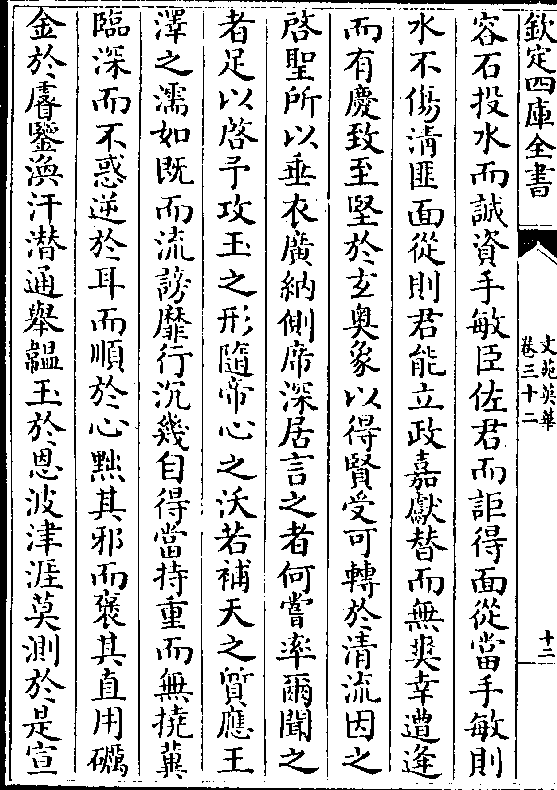 欽定四庫全書
文苑英華
卷三十二
十二
容石投水而誠資手敏臣佐君而詎得面從當手敏則
水不傷清匪面從則君能立政嘉獻替而無爽幸遭逢
而有慶致至堅於玄奥象以得賢受可轉於清流因之
啓聖所以垂衣廣納側席深居言之者何嘗率爾聞之
者足以啓予攻玉之形隨帝心之沃若補天之質應王
澤之濡如既而流謗靡行沉幾自得當持重而無撓冀
臨深而不惑逆於耳而順於心黜其邪而褒其直用礪
金於睿鑒渙汗潛通舉韞玉於恩波津涯莫測於是宣